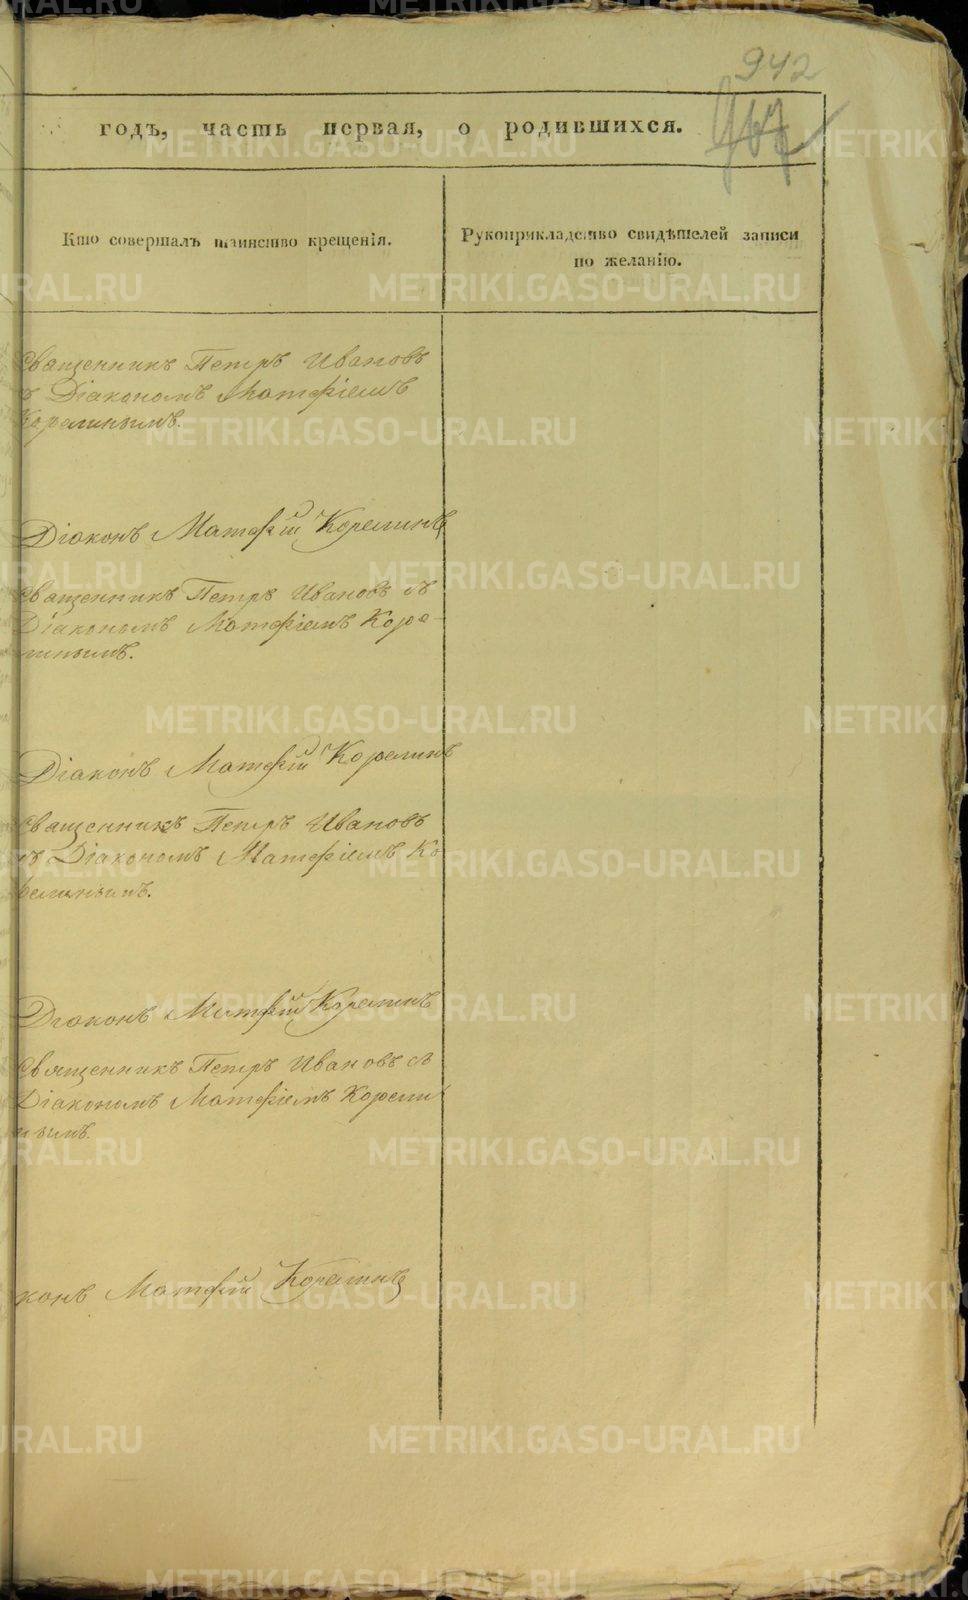 942
годъ, часть первая, о родившихся.
Кто совершалъ таинство крещенія.
Рукоприкладство свидѣтелей записи
по желанію.
Священникъ Петръ Ивановъ
съ Діакономъ Матѳіемъ
Корелинымъ.
Діаконъ Матѳій Корелинъ
Священникъ Петръ Ивановъ съ
Діакономъ Матѳіемъ Коре-
линымъ.
Діаконъ Матѳій Корелинъ
Священникъ Петръ Ивановъ
съ Діакономъ Матѳіемъ Ко-
релинымъ.
Діаконъ Матѳій Корелинъ
Священникъ Петръ Ивановъ съ
Діакономъ Матѳіемъ Корели
нымъ.
конъ Матѳій Корелинъ
METRIKI.GASO-URAL.RU